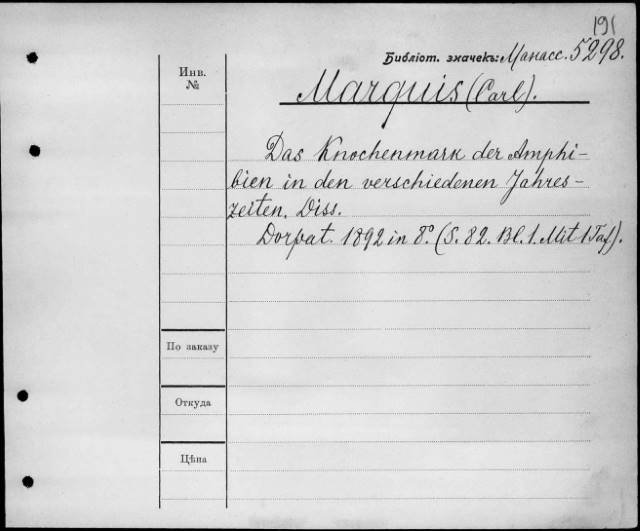 191
Библіот. значекъ: Манасс. 5298.
Инв.
№
Marquis (Carl).
Das Knochenmark der Amphi-
bien in den verschiedenen Jahres-
zeiten. Diss.
Dorpat. 1892 in 8° (S. 82. Bl. 1. Mit 1 Taf.).
По заказу
Откуда
Цѣна